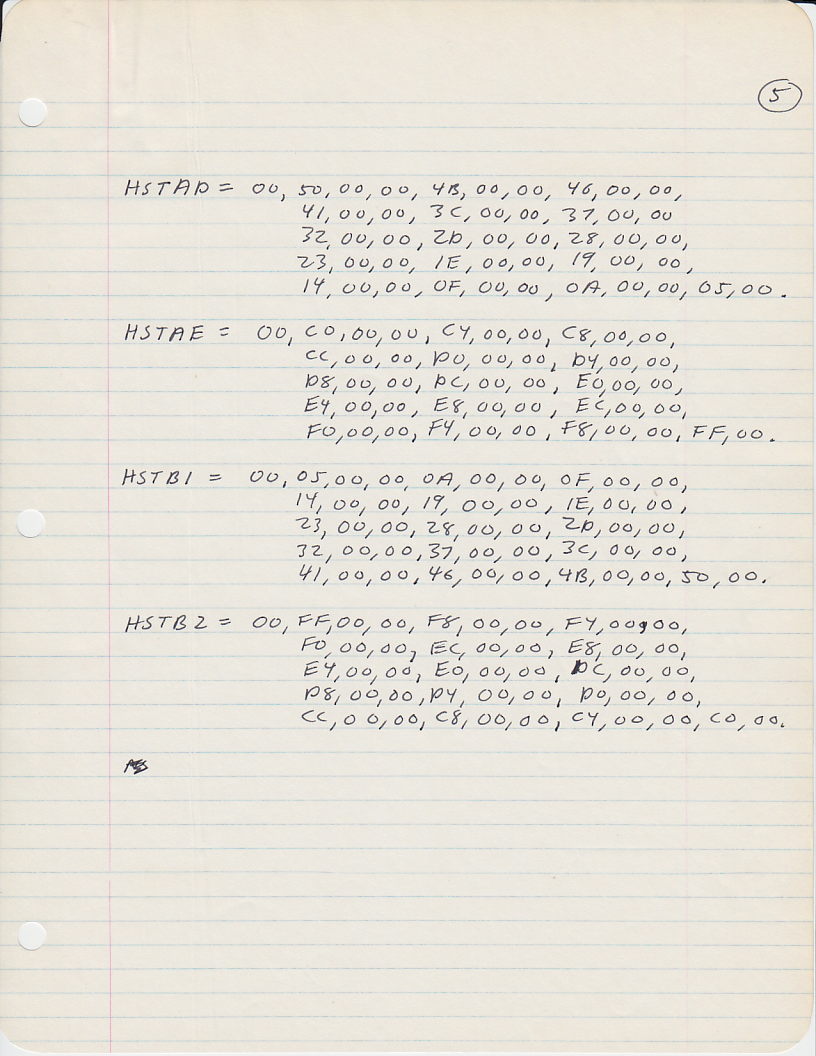 5
HSTAD = 00, 50, 00, 00, 4B, 00, 00, 46, 00, 00,
41, 00, 00, 3C, 00, 00, 37, 00, 00
32, 00, 00, 2D, 00, 00, 28, 00, 00,
23, 00, 00, 1E, 00, 00, 19, 00, 00,
14, 00, 00, 0F, 00, 00, 0A, 00, 00, 05, 00.
HSTAE = 00, C0, 00, 00, C4, 00, 00, C8, 00, 00,
CC, 00, 00, D0, 00, 00, D4, 00, 00,
D8, 00, 00, DC, 00, 00, E0, 00, 00,
E4, 00, 00, E8, 00, 00, EC, 00, 00,
F0, 00, 00, F4, 00, 00, F8, 00, 00, FF, 00.
HSTB1 = 00, 05, 00, 00, 0A, 00, 00, 0F, 00, 00,
14, 00, 00, 19, 00, 00, 1E, 00, 00,
23, 00, 00, 28, 00, 00, 2D, 00, 00,
32, 00, 00, 37, 00, 00, 3C, 00, 00,
41, 00, 00, 46, 00, 00, 4B, 00, 00, 50, 00.
HSTB2 = 00, FF, 00, 00, F8, 00, 00, F4, 00, 00,
F0, 00, 00, EC, 00, 00, E8, 00, 00,
E4, 00, 00, E0, 00, 00, DC, 00, 00,
D8, 00, 00, D4, 00, 00, D0, 00, 00,
CC, 00, 00, C8, 00, 00, C4, 00, 00, C0, 00.